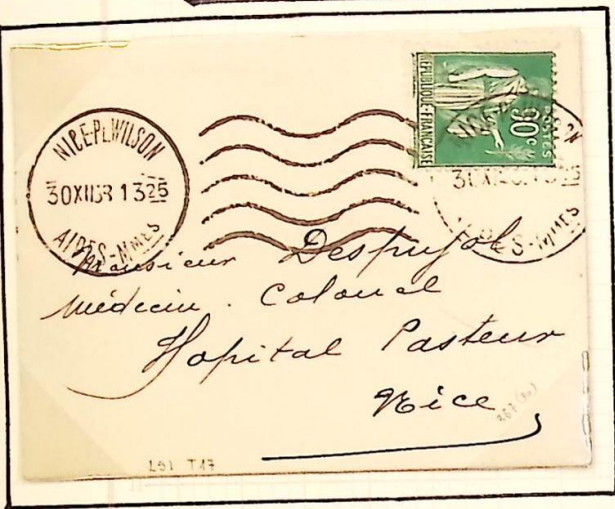 NICE-PL WILSON
30XII38 1325
ALPES-MMES
REPUBLIQUE-FRANÇAISE
POSTES
90c
Monsieur Despujol
Médecin. Colonel
Hopital Pasteur
Nice
L91 T17